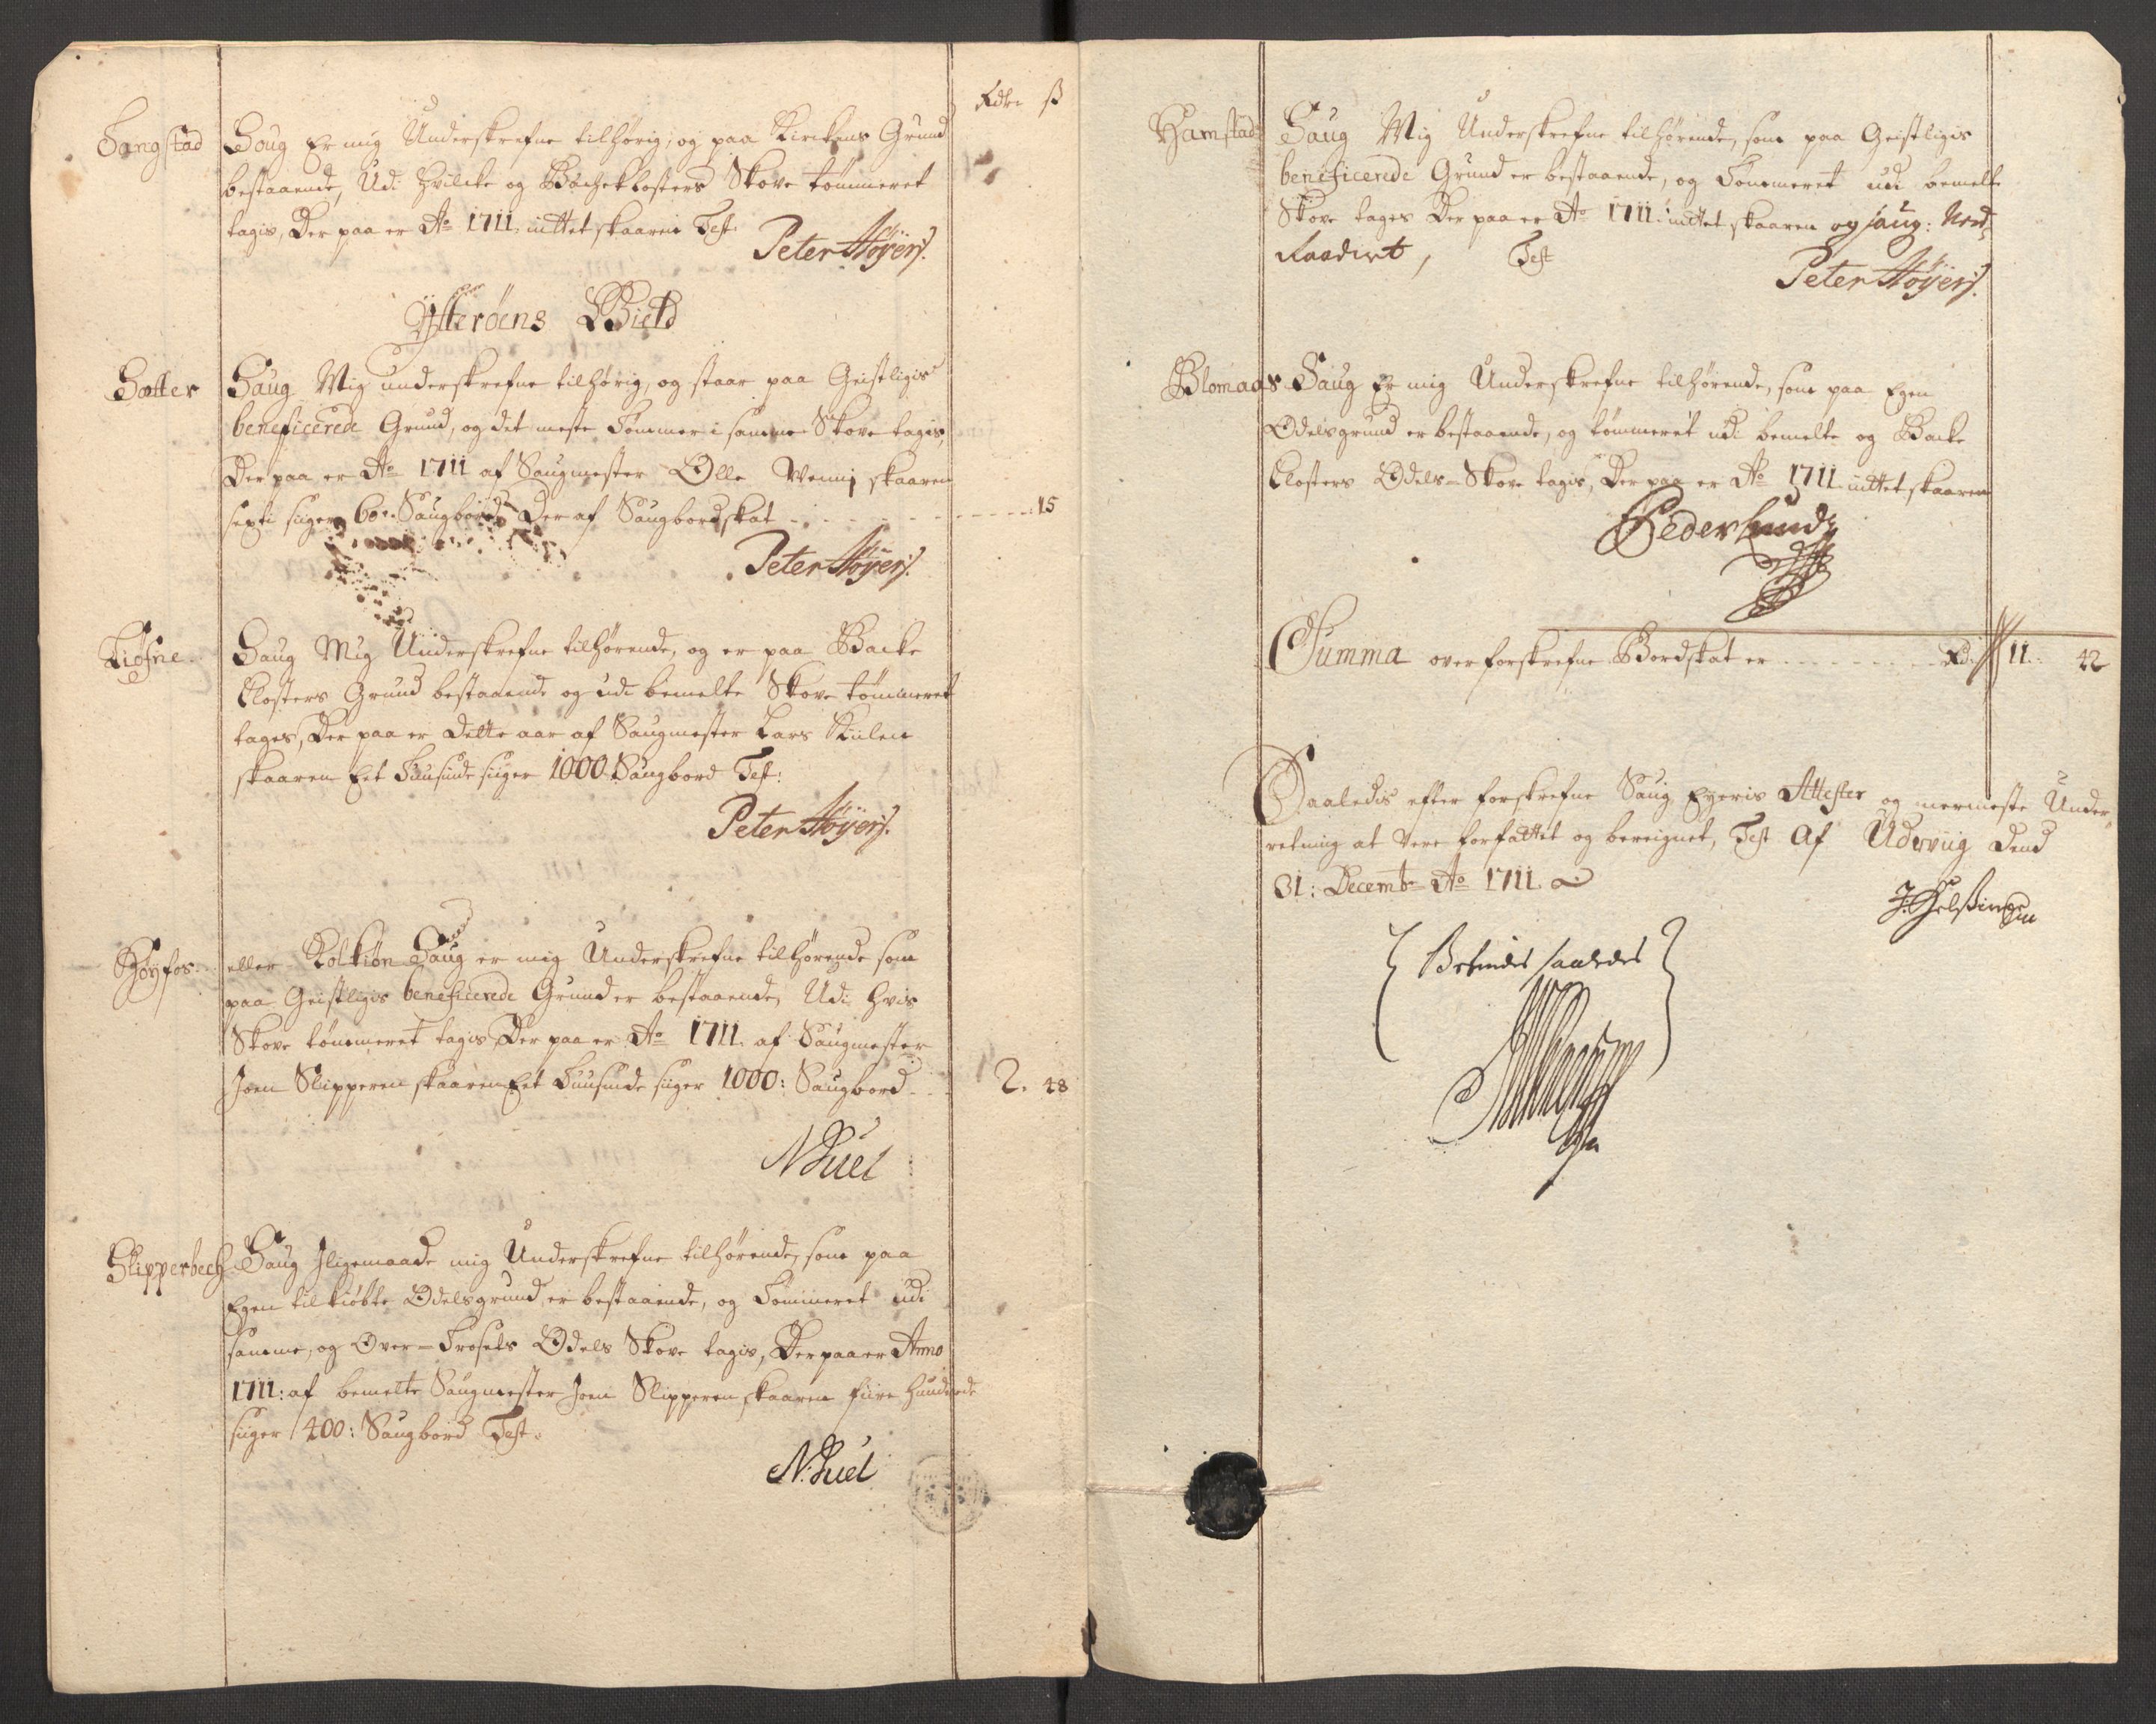 Rdlr ß
Sangstad Saug Er mig Underskrefne tilhørig, og paa Kirkens Grund
bestaaende, Udi hvilcke og Bacheklosters Skove tømmeret
tagis, Der paa er Ao 1711. inttet skaaren Test.
Peter Høyer
Ytterøens Gield
Sætter Saug Mig underskrefne tilhørig, og staar paa Geistligis
beneficerede Grund, og det meste Tømmer i samme Skove tagis,
Der paa er Ao 1711 af Saugmester Olle skaaren
sexti siiger 60. Saugbord Der af Saugbordskat - - - 15
Peter Høyer
Saug Mig Underskrefne tilhørende, og er paa Backe
Closters Grund bestaaende og udi bemelte Skove tømmeret
tages, Der paa er Dette aar af Saugmester Lars
skaaren Eet Tuusinde siiger 1000 Saugbord Test:
Peter Høyer
Høyfos. eller Saug er mig Underskrefne tilhørende som
paa Geistligis beneficerede Grund er bestaaende, Udi hvis
Skove tømmeret tagis, Der paa er Ao 1711. af Saugmester
Joen Slipperen skaaren Eet Tuusinde siiger 1000: Saugbord - - 2. 48
N Juel
Slipperbech Saug Iligemaade mig Underskrefne tilhørende, som paa
Egen tilkiøbte Odelsgrund er bestaaende, og Tømmeret udi
samme, og Over- Odels Skove tagis, Der paa er Anno
1711: af bemelte Saugmester Joen Slipperen skaaren fiire hundrede
siiger 400: Saugbord Test.
N. Juel
Hamstad Saug Mig Underskrefne tilhørende, som paa Geistligis
beneficerede Grund er bestaaende, og Tømmeret udi bemelte
Skove tages Der paa er Ao 1711. inttet skaaren og saug: Ned
Raadnet, Test
Peter Høyer
Blomaas Saug Er mig Underskrefne tilhørende, som paa Egen
Odelsgrund er bestaaende, og tømmeret udi bemelte og Backe
Closters Odels- Skove tagis, Der paa er Ao 1711 inttet skaaren
Peder Lund
Summa over forskrefne Bordskat er - - - Rd. 11. 42
Saaledis efter forskrefne Saug Eyeris Attester og nermeste Under
retning at vere forfattet og beregnet, Test Af Udviig Dend
31: Decembr Ao 1711.
Befindes saaledes